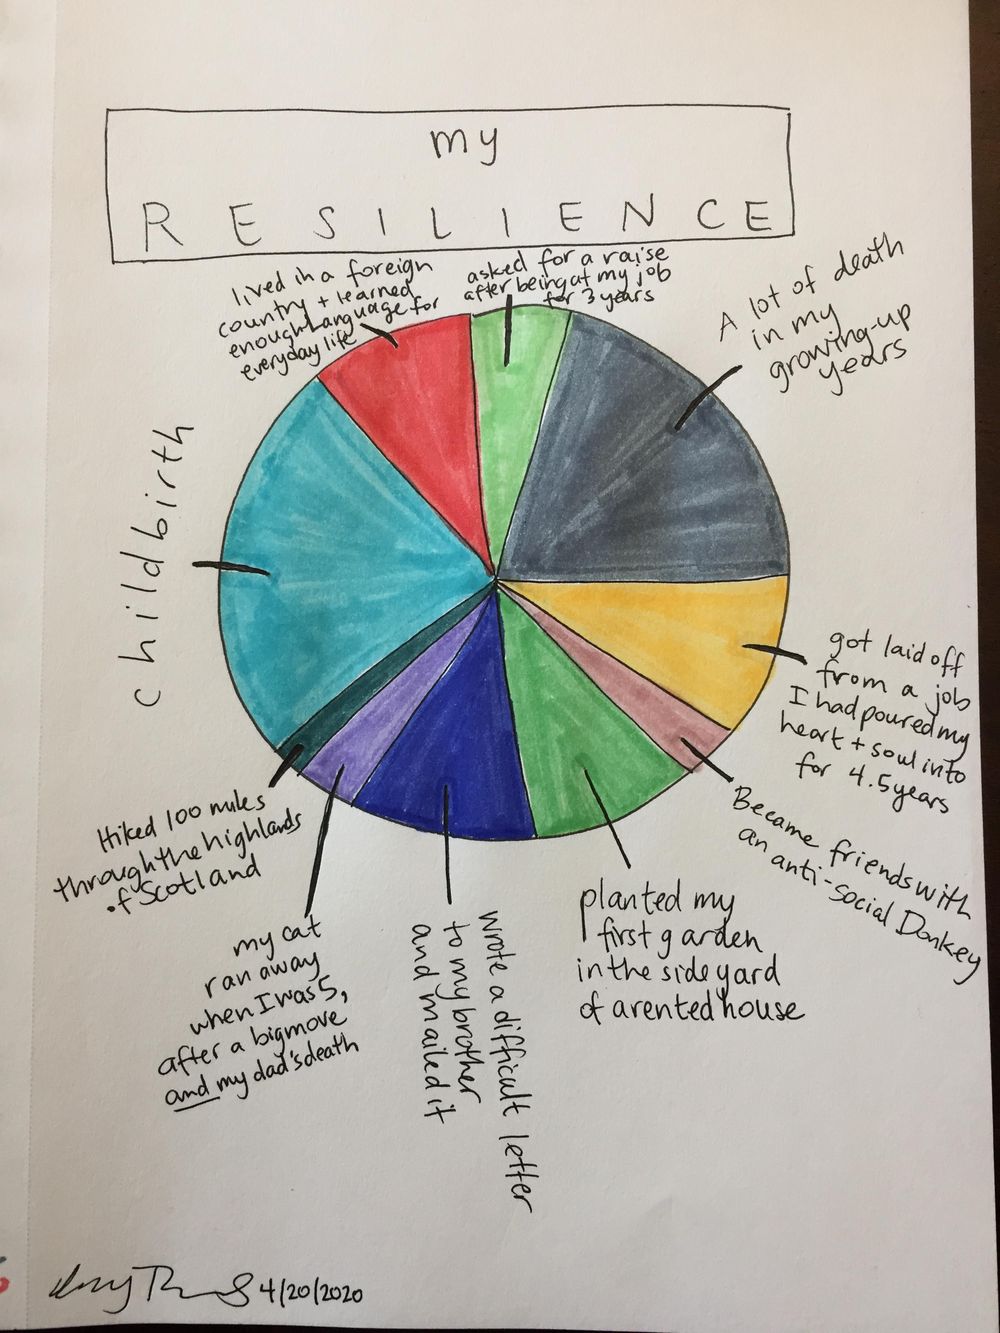 my
RESILIENCE
lived in a foreign
country + learned
enough Language for
everyday life
asked for a raise
after being at my job
for 3 years
A lot of death
in my
growing-up
years
got laid off
from a job
I had poured my
heart + soul into
for 4.5 years
Became friends with
an anti-social Donkey
planted my
first garden
in the side yard
of a rented house
wrote a difficult letter
to my brother
and mailed it
my cat
ran away
when I was 5,
after a big move
and my dad's death
Hiked 100 miles
through the highlands
of Scotland
childbirth
4/20/2020